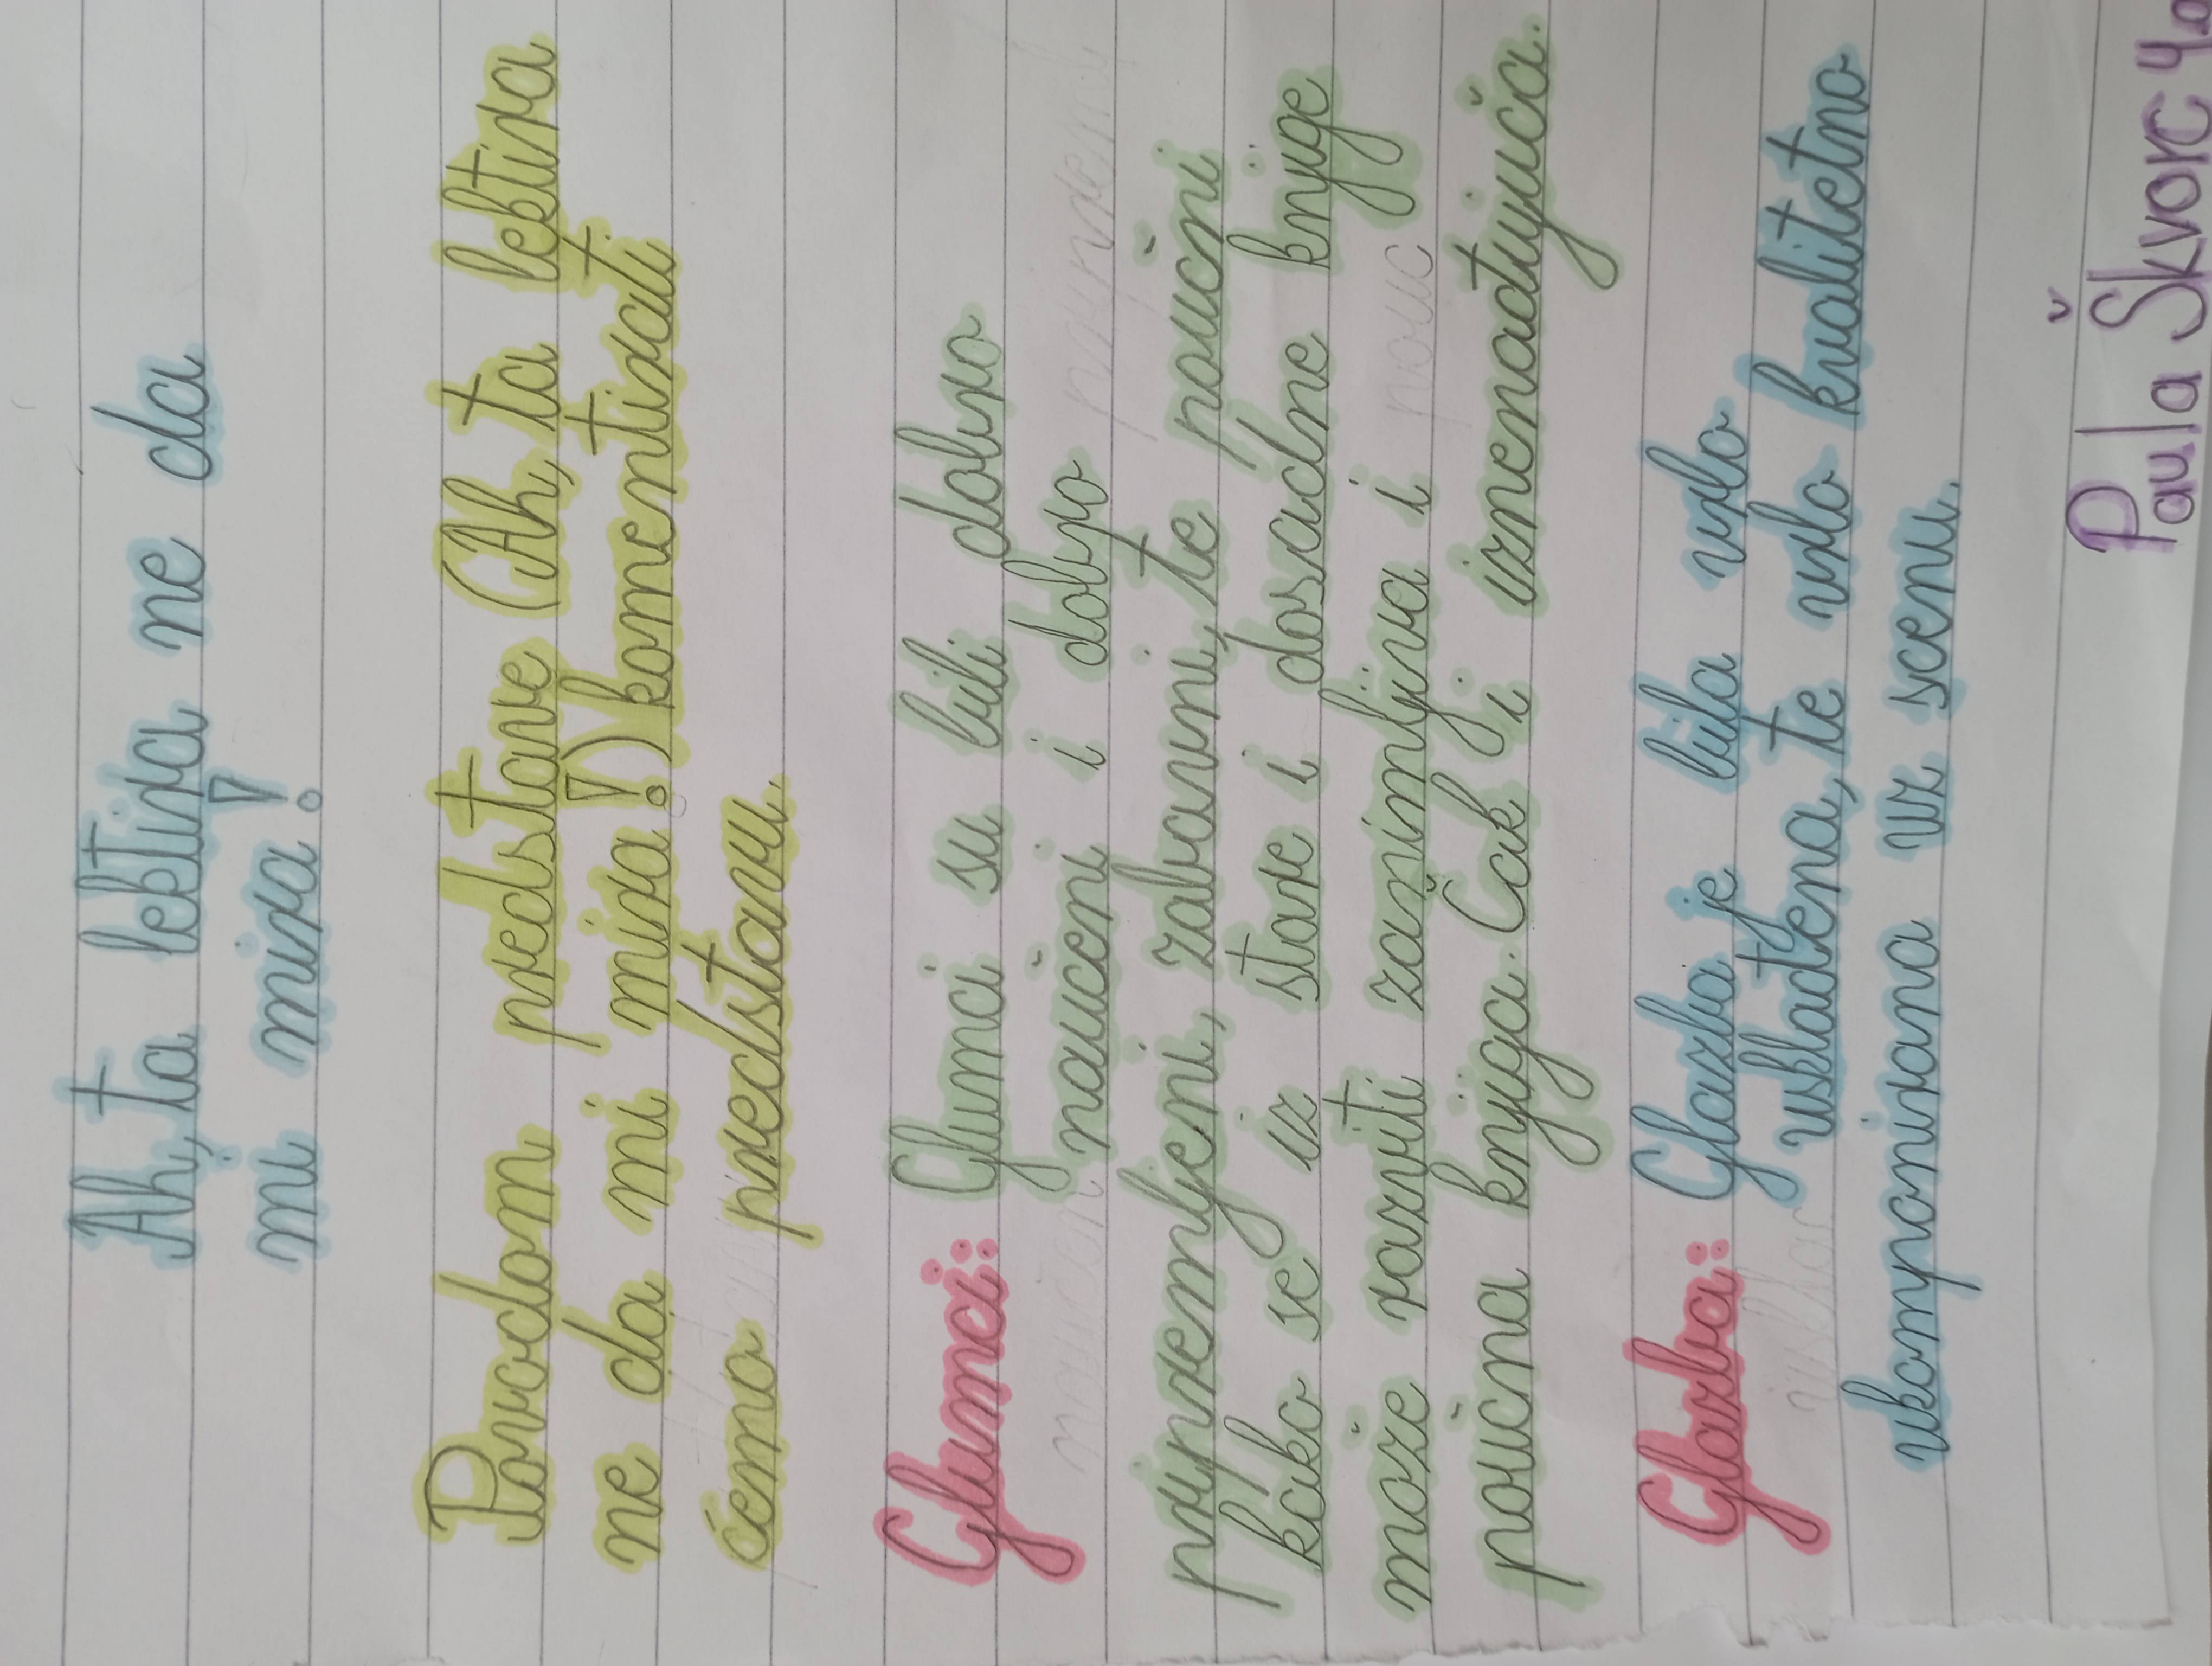 Ah, ta lektira ne da
mi mira!
Povodom predstave (Ah, ta lektira
ne da mi mira!) komentirati
ćemo predstavu.
Glumci: Glumci su bili dobro
naučeni i dobro
pripremljeni, zabavni, te poučni
kako se iz stare i dosadne knjige
može razviti zanimljiva i
poučna knjiga. Čak i iznenađujuća.
Glazba: Glazba je bila vrlo
usklađena, te vrlo kvalitetno
ukomponirana uz scenu.
Paula Škvorc 4.a